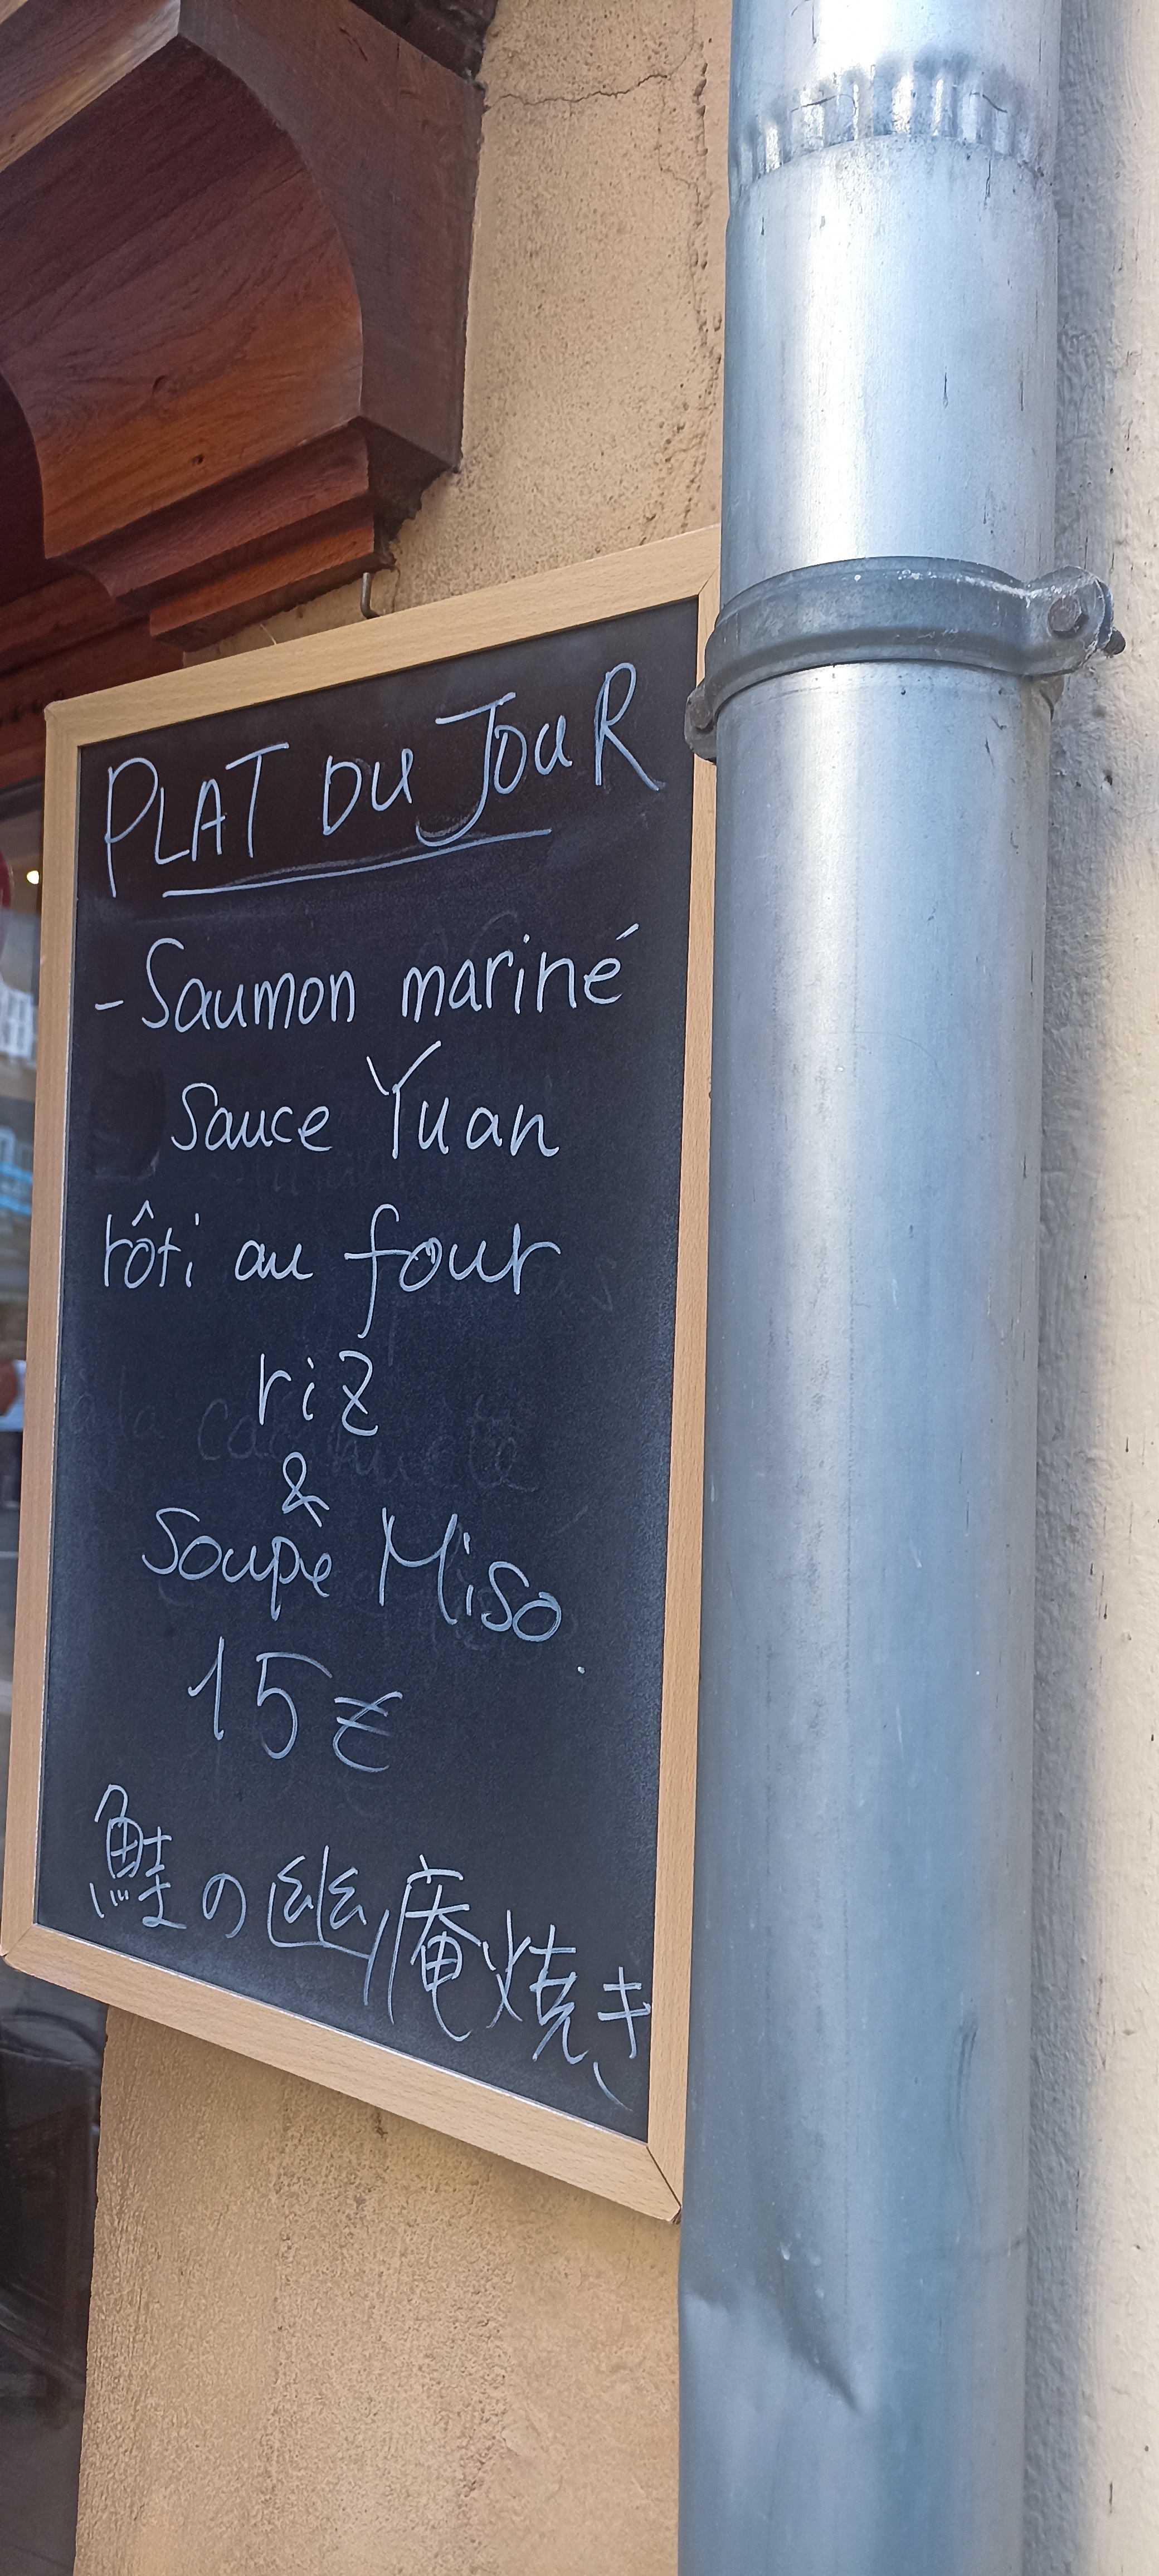 PLAT DU JOUR
- Saumon mariné
Sauce Yuan
rôti au four
riz
&
Soupe Miso.
15€
鮭の幽庵焼き